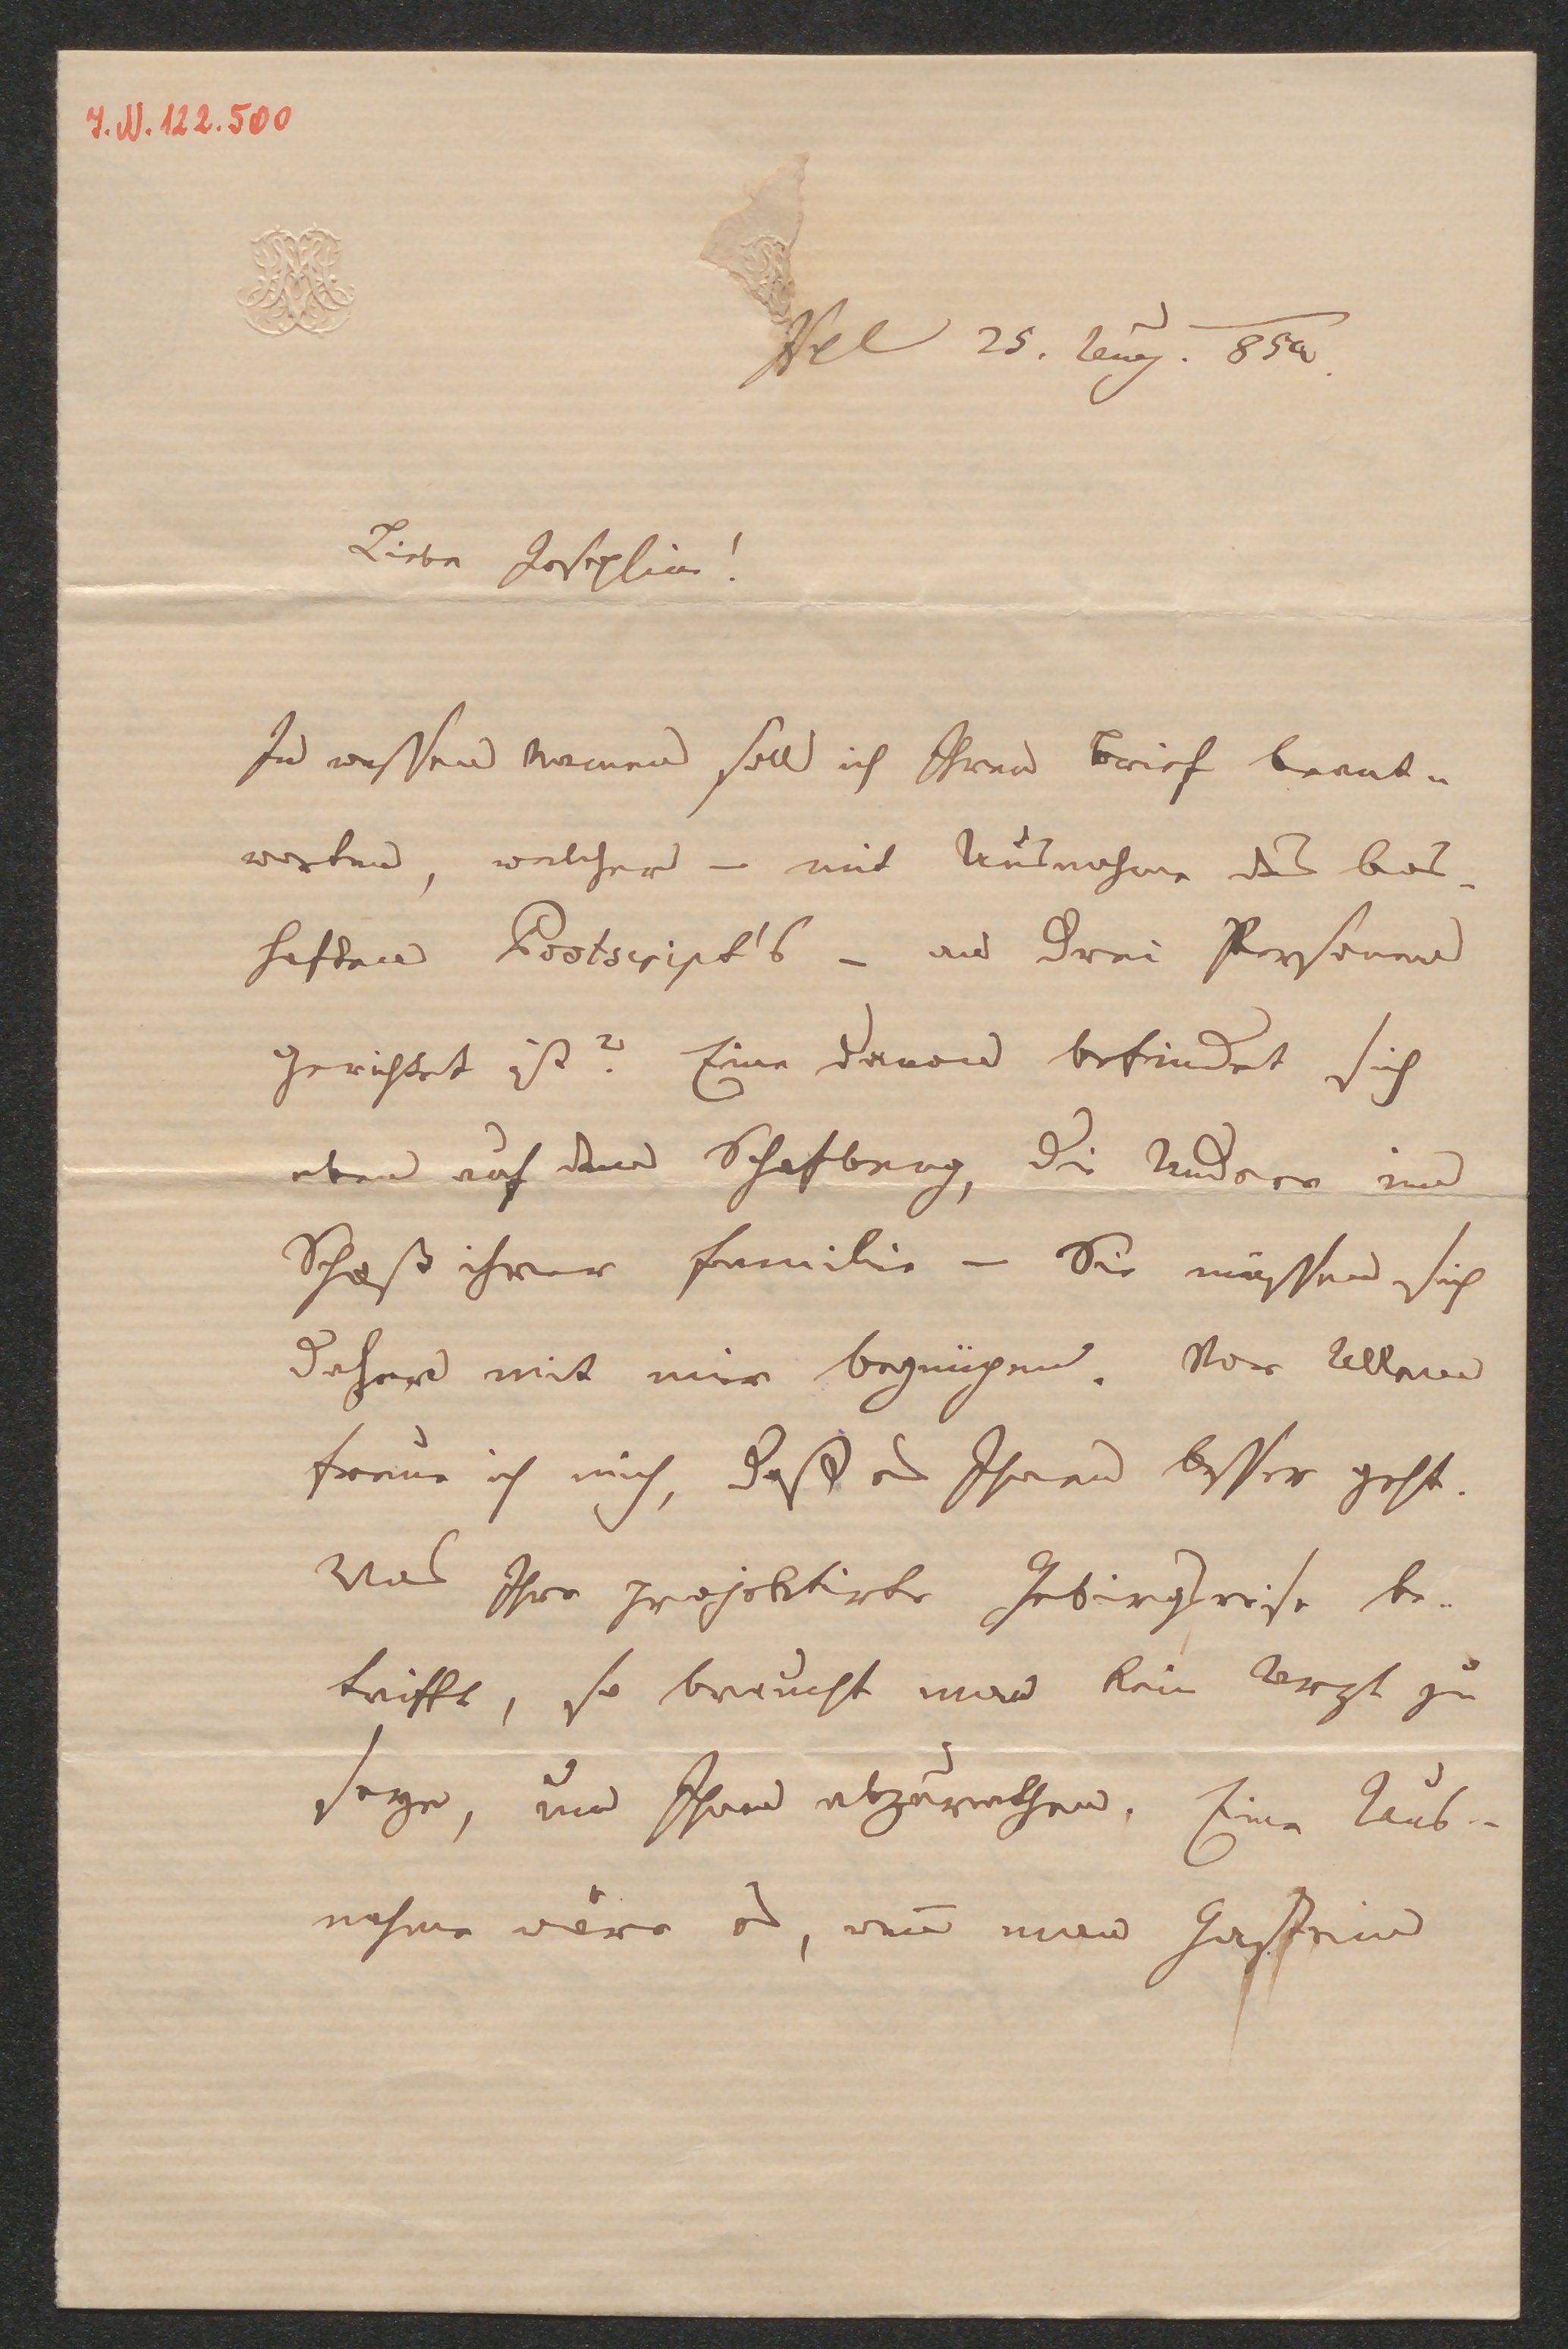 I.N. 122.500
Ischl 25. Aug. 85
Liebe Josephine!
In wessen Namen soll ich Ihren Brief beant-
worten, welcher – mit Ausnahme des bos-
haften Postscript's – an drei Personen
gerichtet ist? Eine davon befindet sich
eben auf dem Schafberg, die Andere im
Schoß ihrer Familie – Sie müssen sich
daher mit mir begnügen. Vor Allem
freue ich mich, daß es Ihnen besser geht.
Was Ihre projektirte Gebirgsreise be-
trifft, so braucht man kein Arzt zu
seyn, um Ihnen abzurathen. Eine Aus-
nahme wäre es, wenn man Gastein